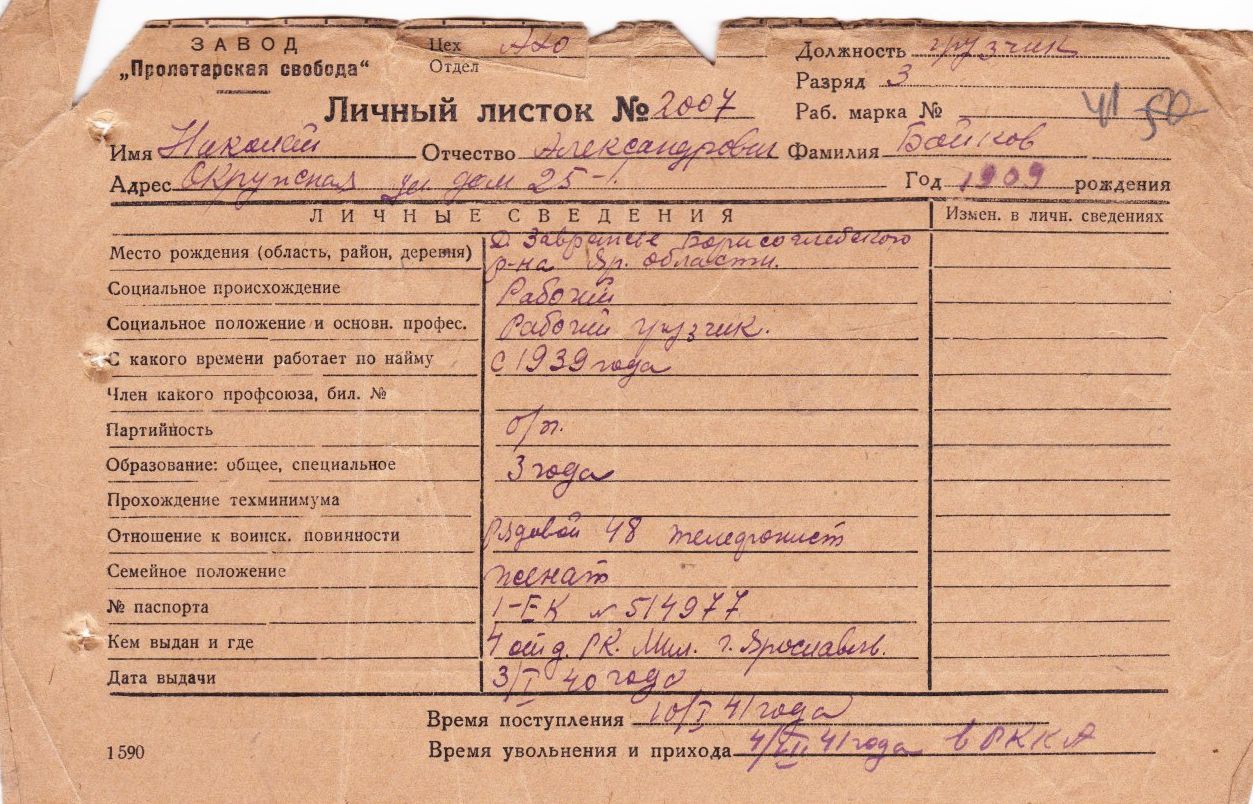 ЗАВОД
„Пролетарская свобода“
Цех АХО
Отдел
Должность грузчик
Разряд 3
Раб. марка №
41 50
Личный листок № 2007
Имя Николай Отчество Александрович Фамилия Бойков
Адрес Окружная ул. дом 25-1. Год 1909 рождения
ЛИЧНЫЕ СВЕДЕНИЯ Измен. в личн. сведениях
Место рождения (область, район, деревня) Д. Завражье Борисоглебского
р-на Яр. области.
Социальное происхождение Рабочий
Социальное положение и основн. професс. Рабочий грузчик.
С какого времени работает по найму с 1939 года
Член какого профсоюза, бил. №
Партийность б/п.
Образование: общее, специальное 3 года
Прохождение техминимума
Отношение к воинск. повинности Рядовой 48 телефонист
Семейное положение женат
№ паспорта I-ЕК № 514977
Кем выдан и где 4 отд. РК. Мил. г. Ярославль.
Дата выдачи 3/I 40 года
Время поступления 10/I 41 года
Время увольнения и прихода 4/VII 41 года в РККА
1590